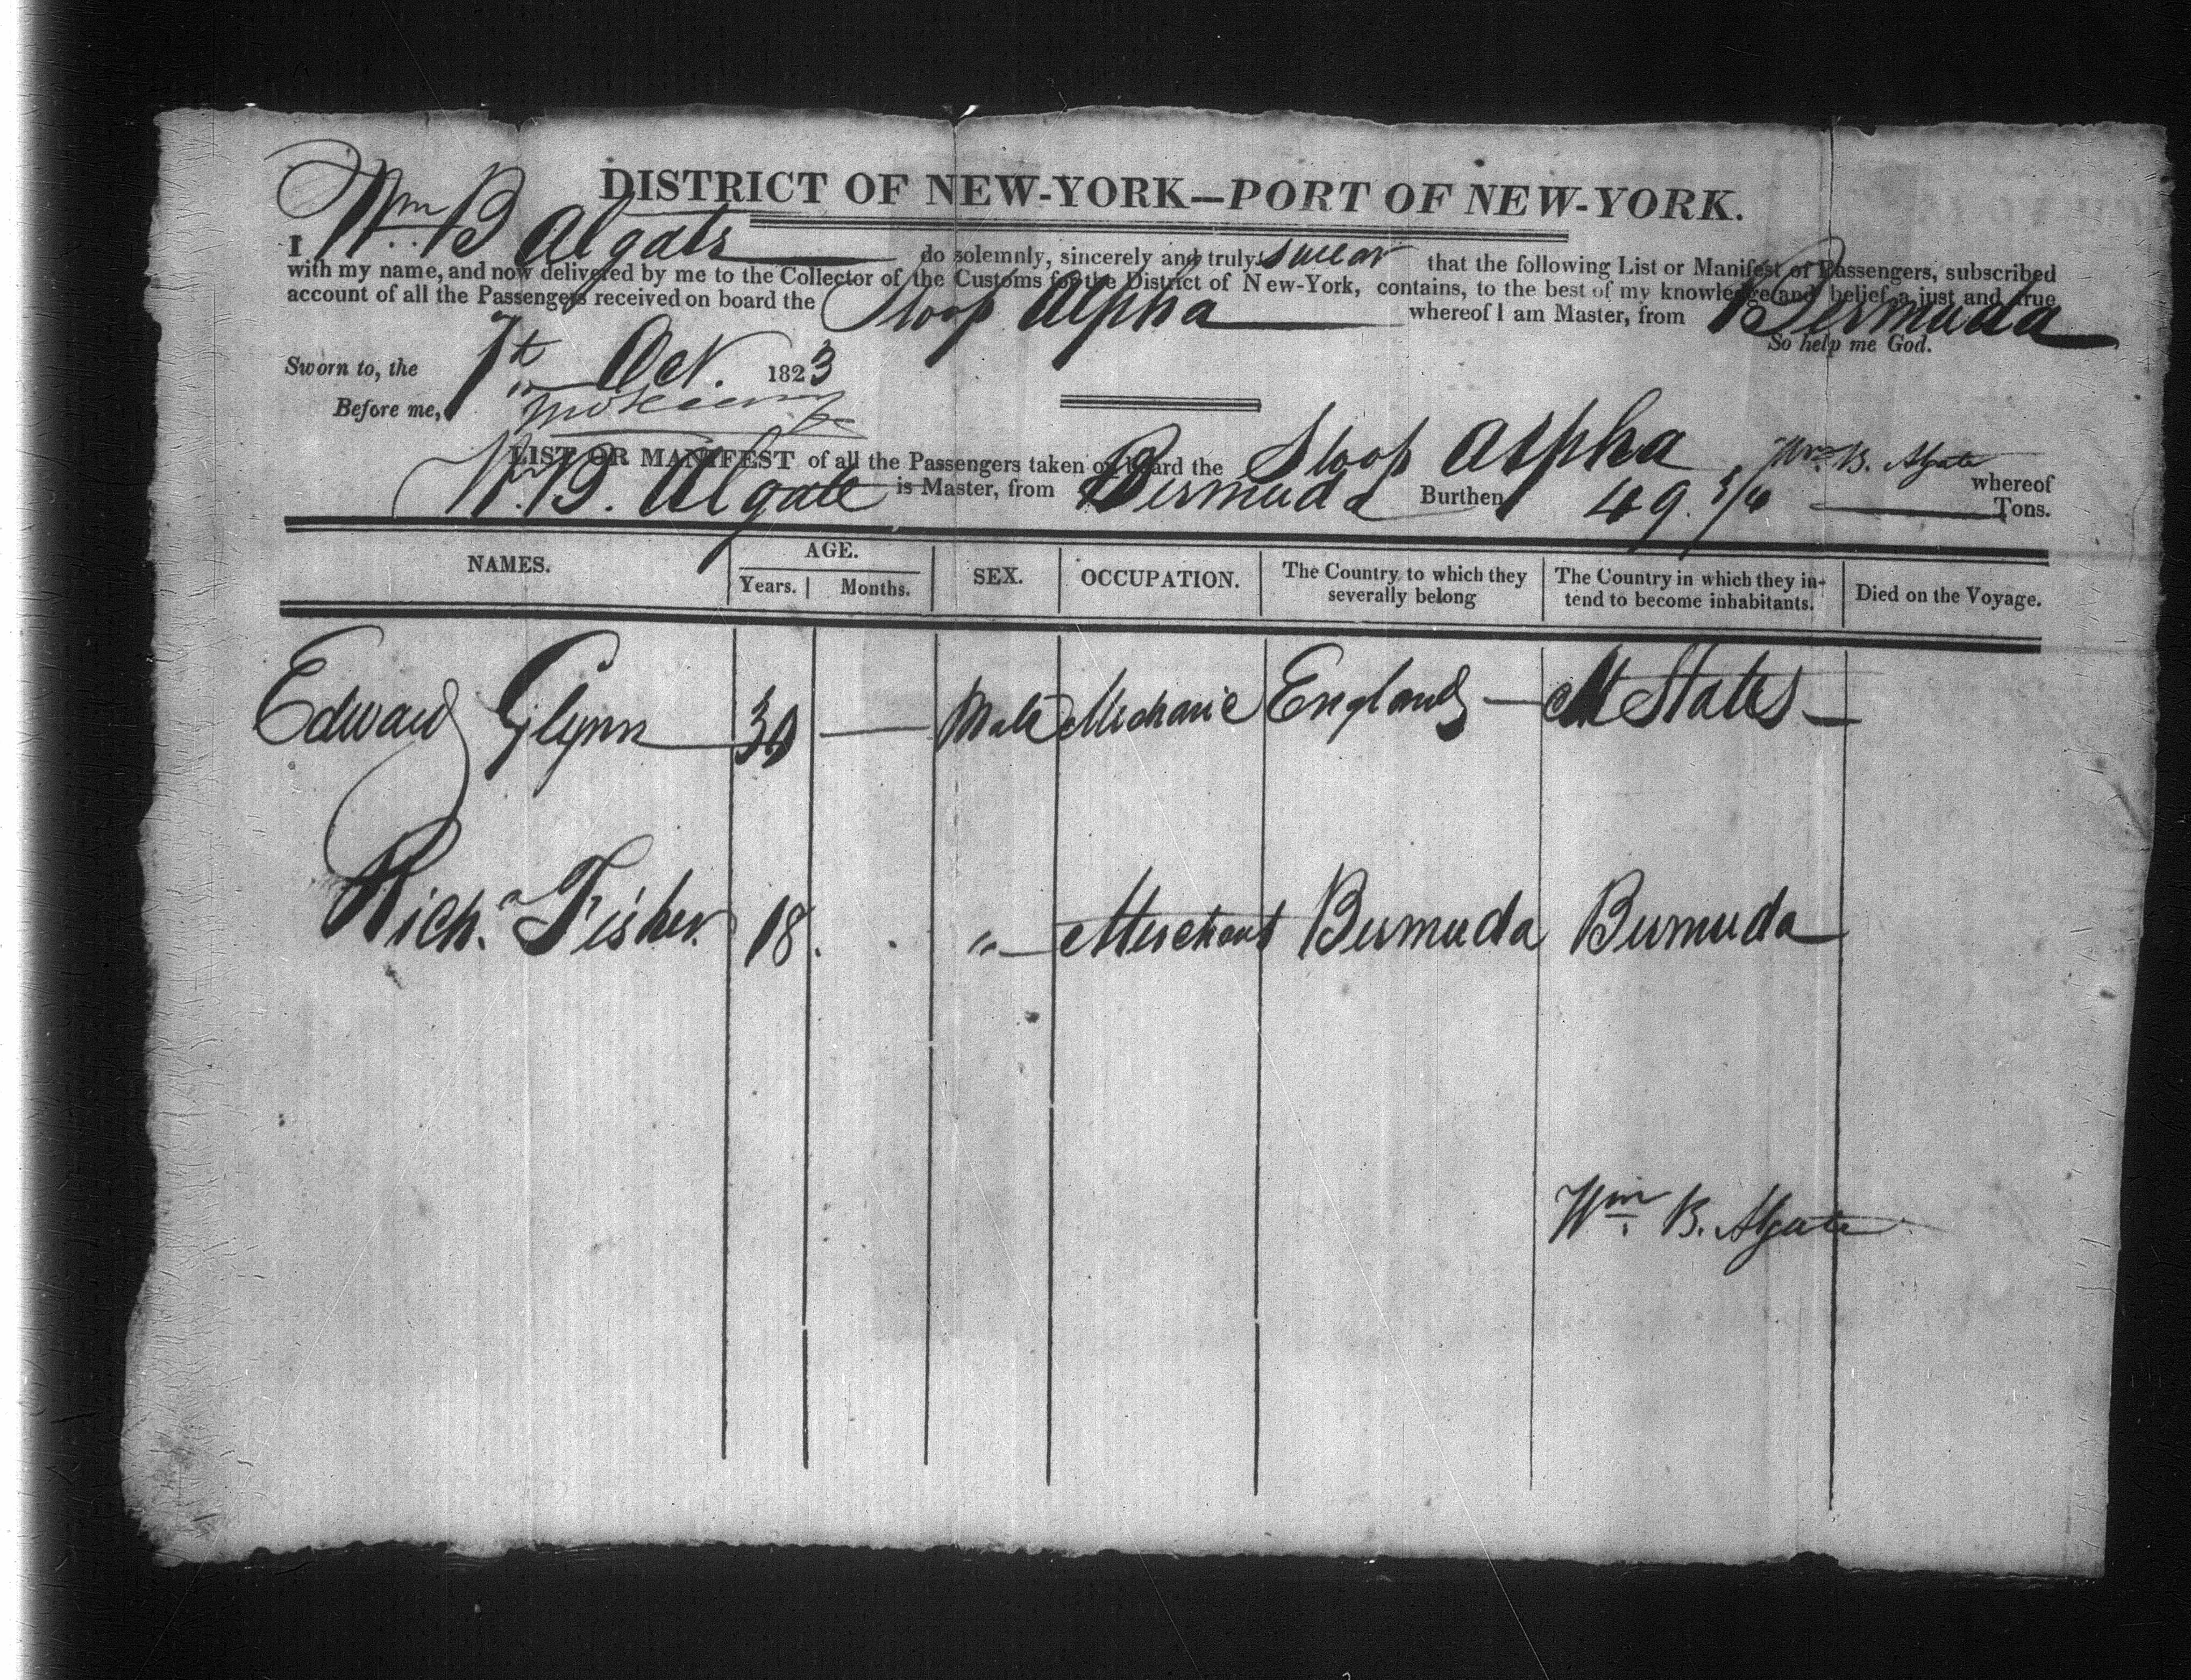 DISTRICT OF NEW-YORK—PORT OF NEW-YORK.
I Wm B Algate do solemnly, sincerely and truly swear that the following List or Manifest of Passengers, subscribed
with my name, and now delivered by me to the Collector of the Customs for the District of New-York, contains, to the best of my knowledge and belief, a just and true
account of all the Passengers received on board the Sloop Alpha whereof I am Master, from Bermuda
So help me God.
Sworn to, the 7th Oct. 1823
Before me,
LIST OR MANIFEST of all the Passengers taken on board the Sloop Alpha Wm B. Algate whereof
W. B. Algate is Master, from Bermuda Burthen 49. Tons.
NAMES. AGE. Years. Months. SEX. OCCUPATION. The Country to which they severally belong The Country in which they intend to become inhabitants. Died on the Voyage.
Edward Glynn — Male Mechanic England — States —
Richd Fisher. 18. " — Merchant Bermuda Bermuda
Wm B. Algate